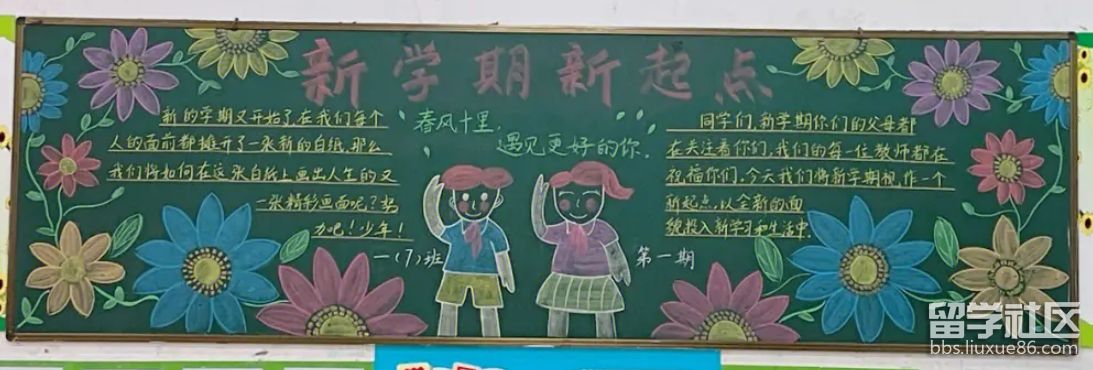 新学期新起点
新的学期又开始了,在我们每个
人的面前都摊开了一张新的白纸,那么
我们将如何在这张白纸上画出人生的又
一张精彩画面呢?努
力吧!少年!
春风十里,
遇见更好的你。
同学们,新学期你们的父母都
在关注着你们,我们的每一位教师都在
祝福你们。今天我们将新学期视作一个
新起点,以全新的面
貌投入新学习和生活中。
一(7)班
第一期
留学社区
bbs.liuxue86.com